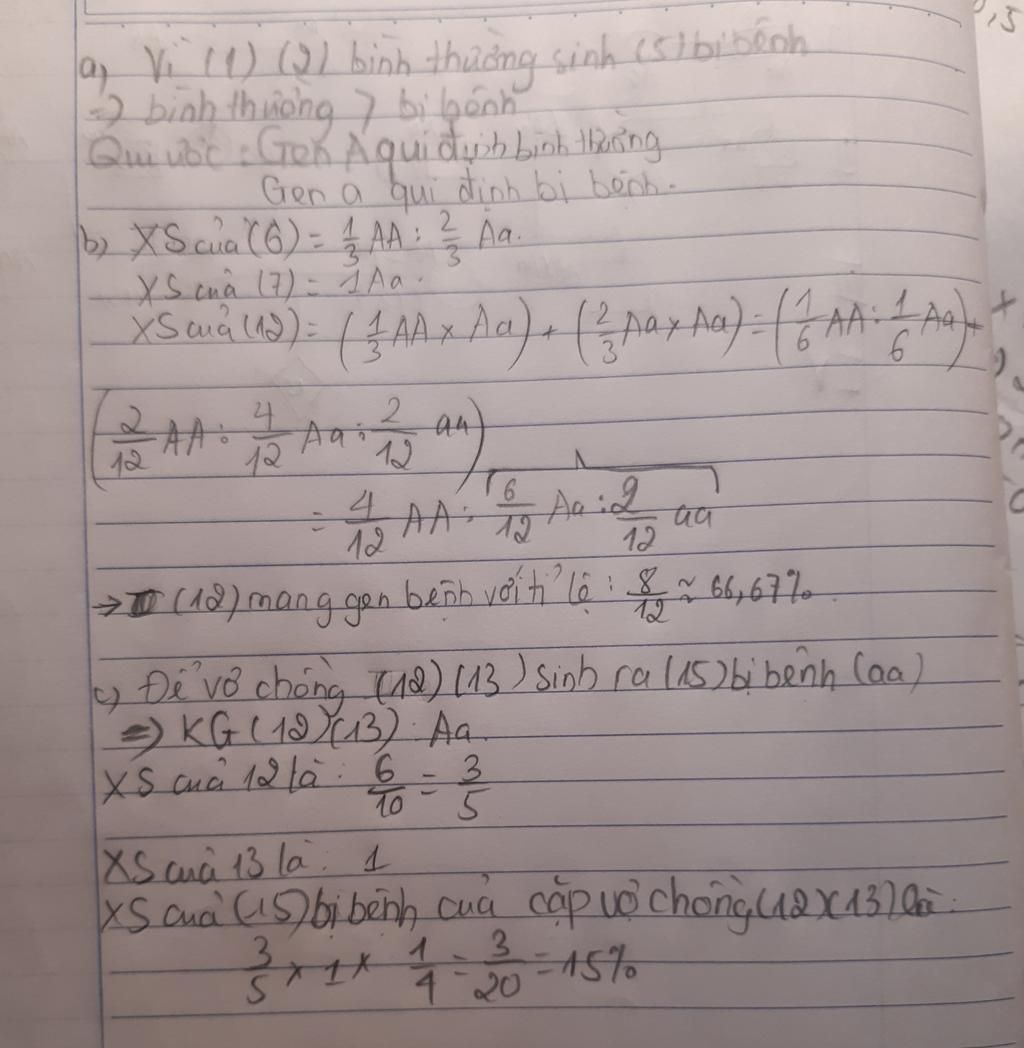 a) Vì (1) (2) bình thường sinh (5) bị bệnh
=> bình thường > bị bệnh
Qui ước: Gen A qui định bình thường
Gen a qui định bị bệnh.
b) XS của (6) = 1/3 AA : 2/3 Aa.
XS của (7) = 1Aa.
XS của (12) = (1/3 AA x Aa) + (2/3 Aa x Aa) = (1/6 AA : 1/6 Aa) +
(2/12 AA : 4/12 Aa : 2/12 aa)
= 4/12 AA : 6/12 Aa : 2/12 aa
→ (12) mang gen bệnh với tỉ lệ : 8/12 ≈ 66,67%.
c) Để vợ chồng (12) (13) sinh ra (15) bị bệnh (aa)
=> KG (12) (13) : Aa.
XS của 12 là : 6/10 = 3/5
XS của 13 là : 1
XS của (15) bị bệnh của cặp vợ chồng (12 x 13) là :
3/5 x 1 x 1/4 = 3/20 = 15%